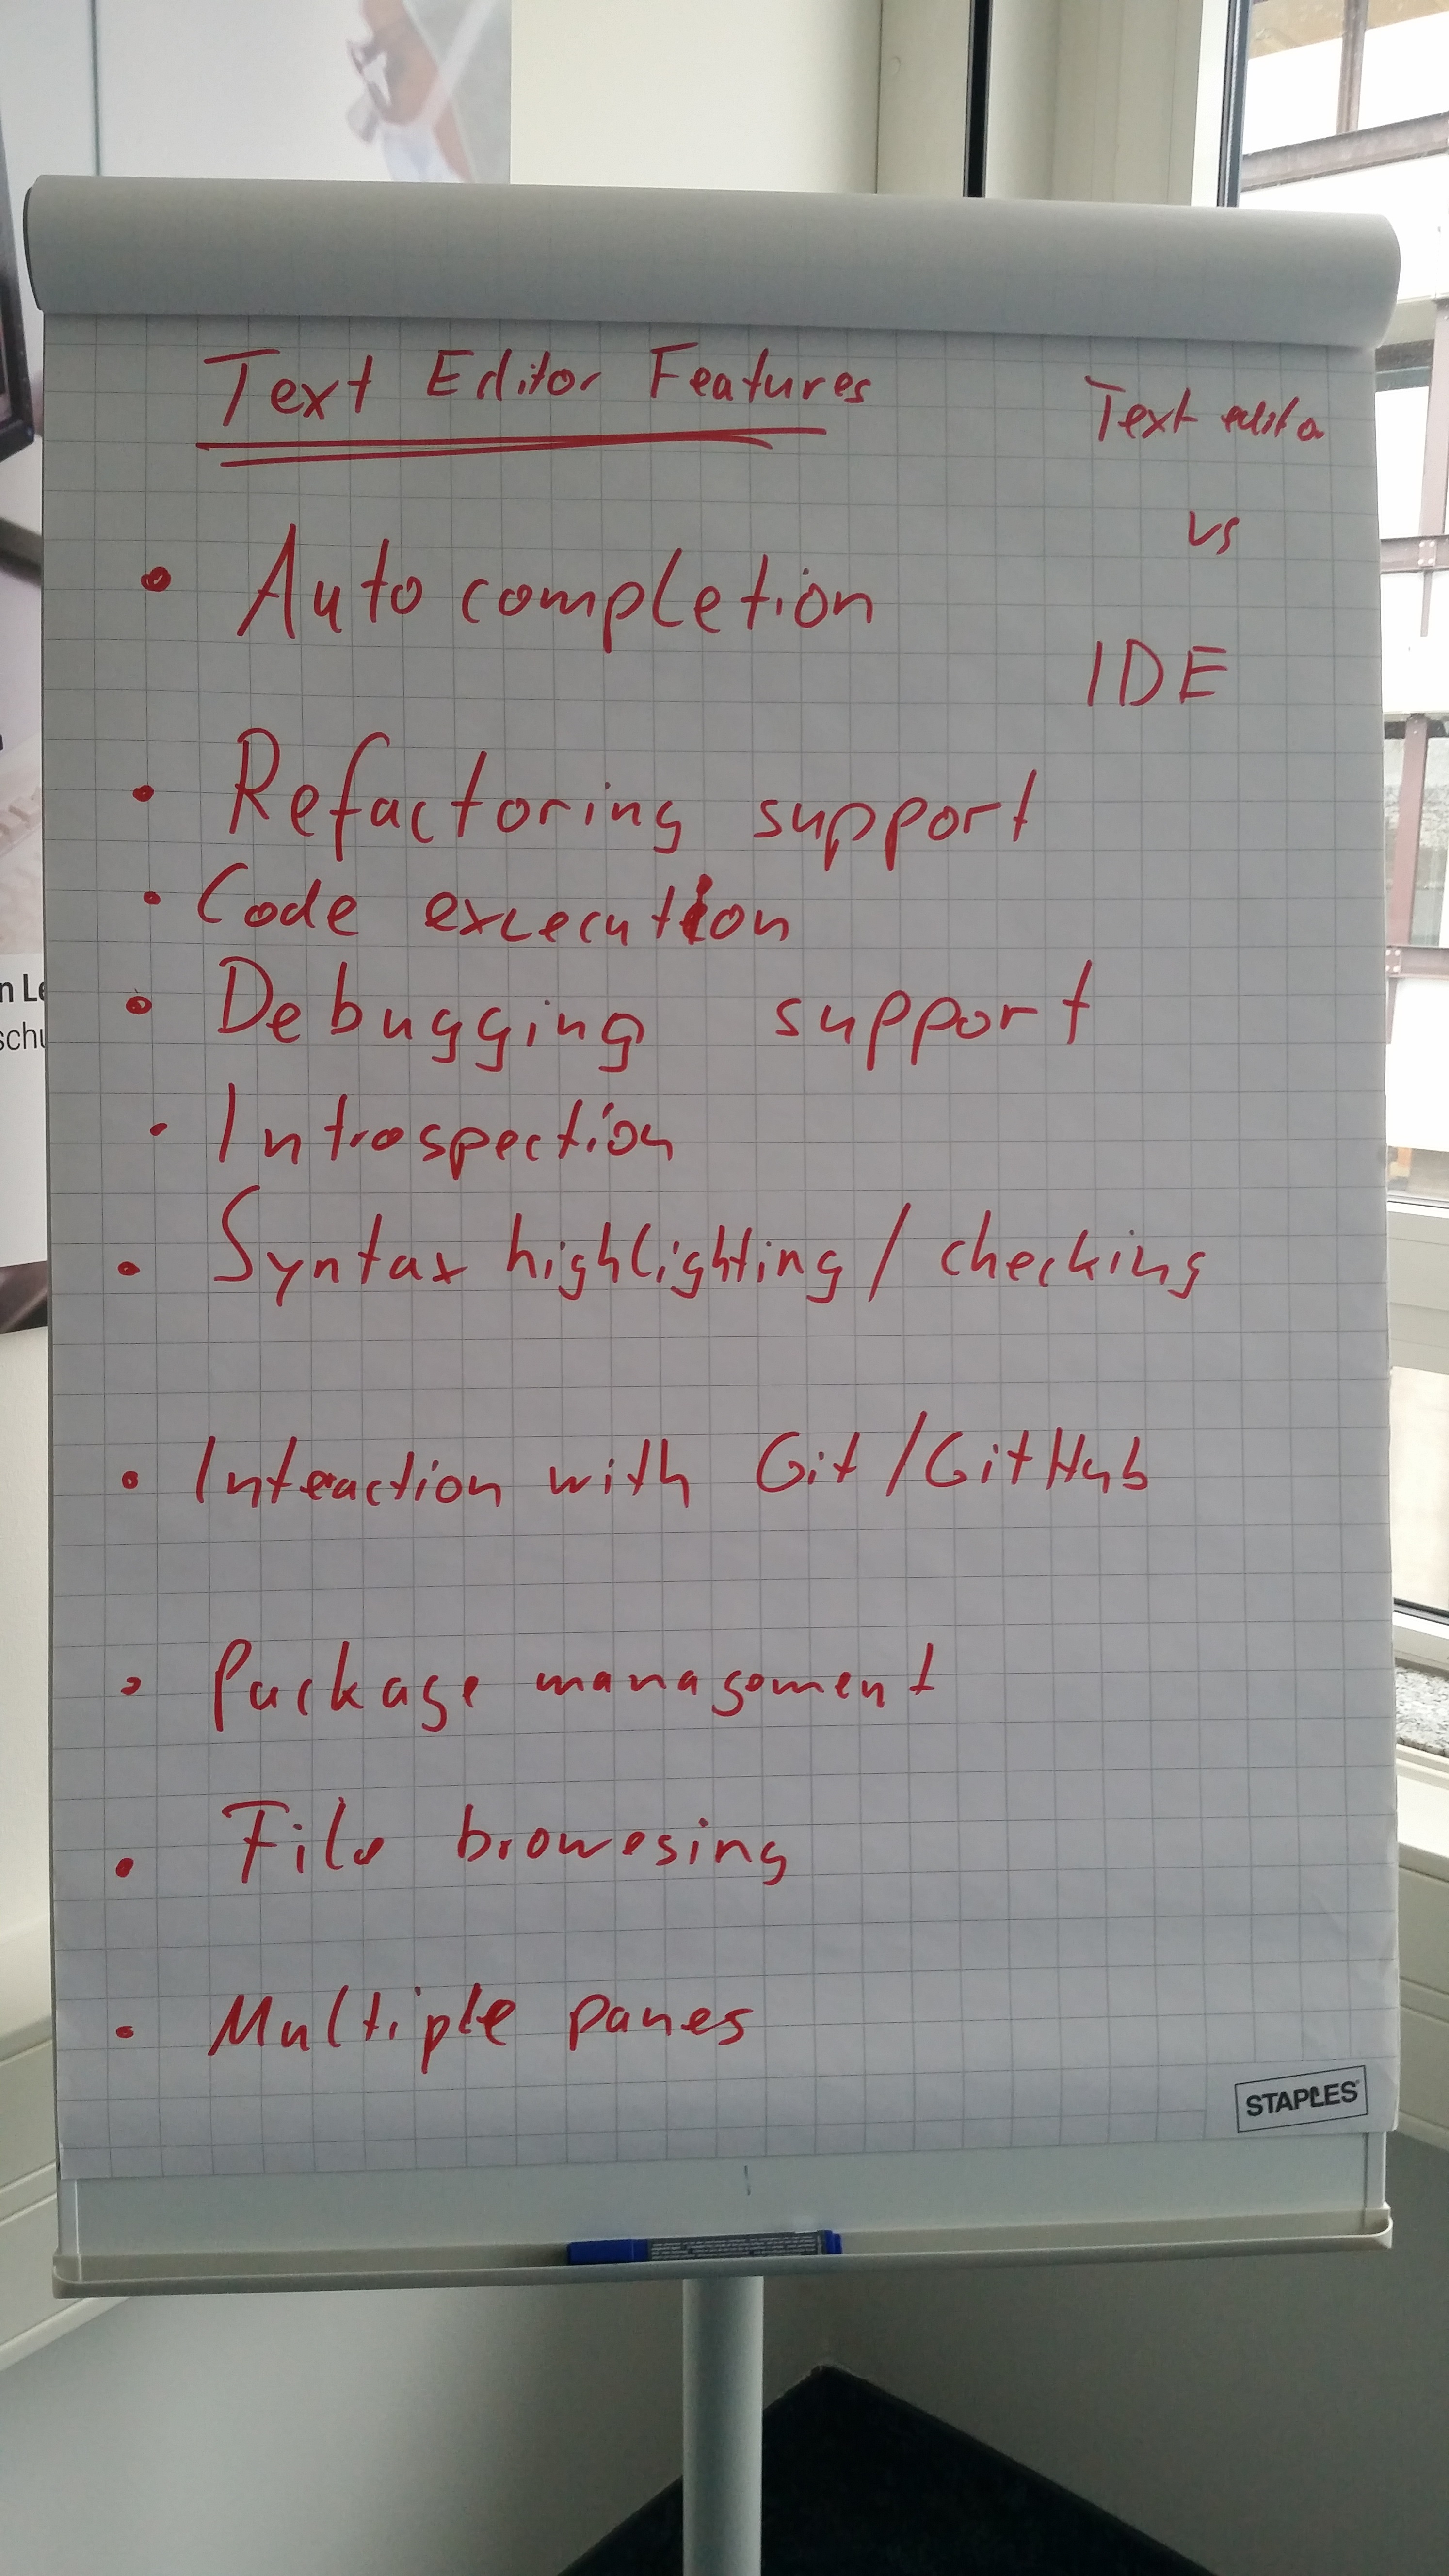 Text Editor Features
Text edito
vs
IDE
• Auto completion
• Refactoring support
• Code execution
• Debugging support
• Introspection
• Syntax highlighting / checking
• Interaction with Git / GitHub
• Package management
• File browsing
• Multiple panes
STAPLES